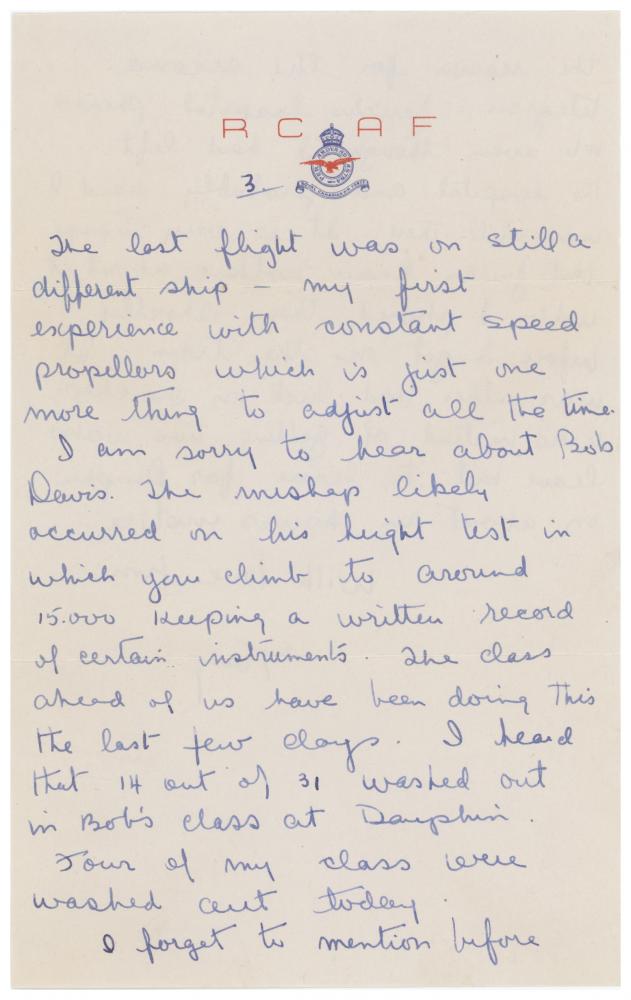 R C A F
3.
The last flight was on still a
different ship – my first
experience with constant speed
propellors which is just one
more thing to adjust all the time.
I am sorry to hear about Bob
Davis. The mishap likely
occurred on his height test in
which you climb to around
15.000 keeping a written record
of certain instruments. The class
ahead of us have been doing this
the last few days. I heard
that 14 out of 31 washed out
in Bob's class at Dauphin.
Four of my class were
washed out today.
I forget to mention before